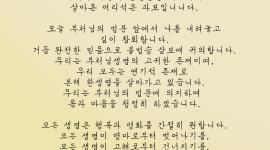 살아온 어리석은 과보입니다.
오늘 부처님의 법문 앞에서 나를 내려놓고
깊이 참회합니다.
거듭 완전한 믿음으로 불법승 삼보께 귀의합니다.
우리는 부처님생명의 고귀한 존재이며,
우리 모두는 연기적 존재로
본래 한생명을 살아가고 있습니다.
우리는 부처님의 법문에 의지하여
몸과 마음을 청정히 하겠습니다.
모든 생명은 행복과 평화를 간절히 원합니다.
모든 생명이 병마로부터 벗어나기를,
모든 생명이 고해로부터 건너지기를,